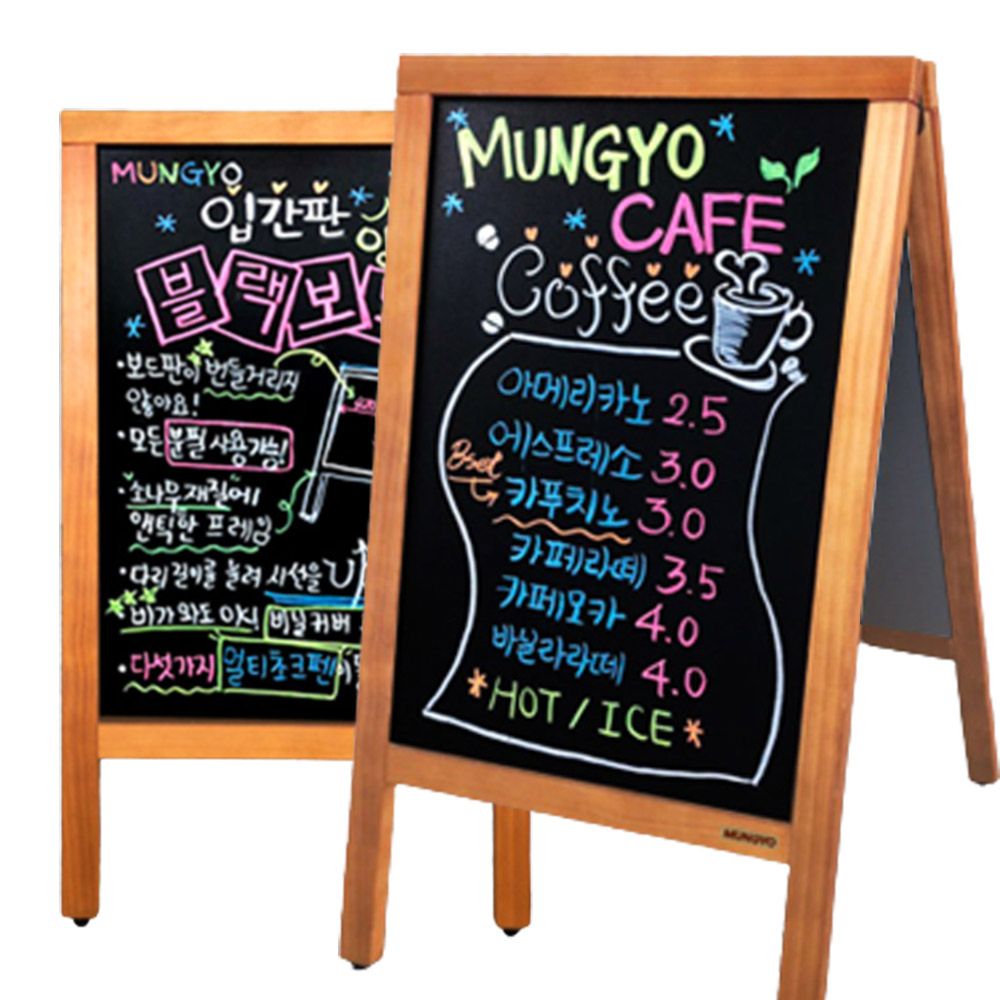 MUNGYO
입간판
블랙보
·보드판이 번들거리지
않아요!
·모든 분필 사용가능!
·소나무 재질에
앤틱한 프레임
·다리길이를 늘려 시선을 UP
·비가 와도 OK! 비닐커버
·다섯가지 멀티초크펜이
MUNGYO
CAFE
Coffee
아메리카노 2.5
에스프레소 3.0
Best
카푸치노 3.0
카페라떼 3.5
카페모카 4.0
바닐라라떼 4.0
*HOT / ICE*
MUNGYO